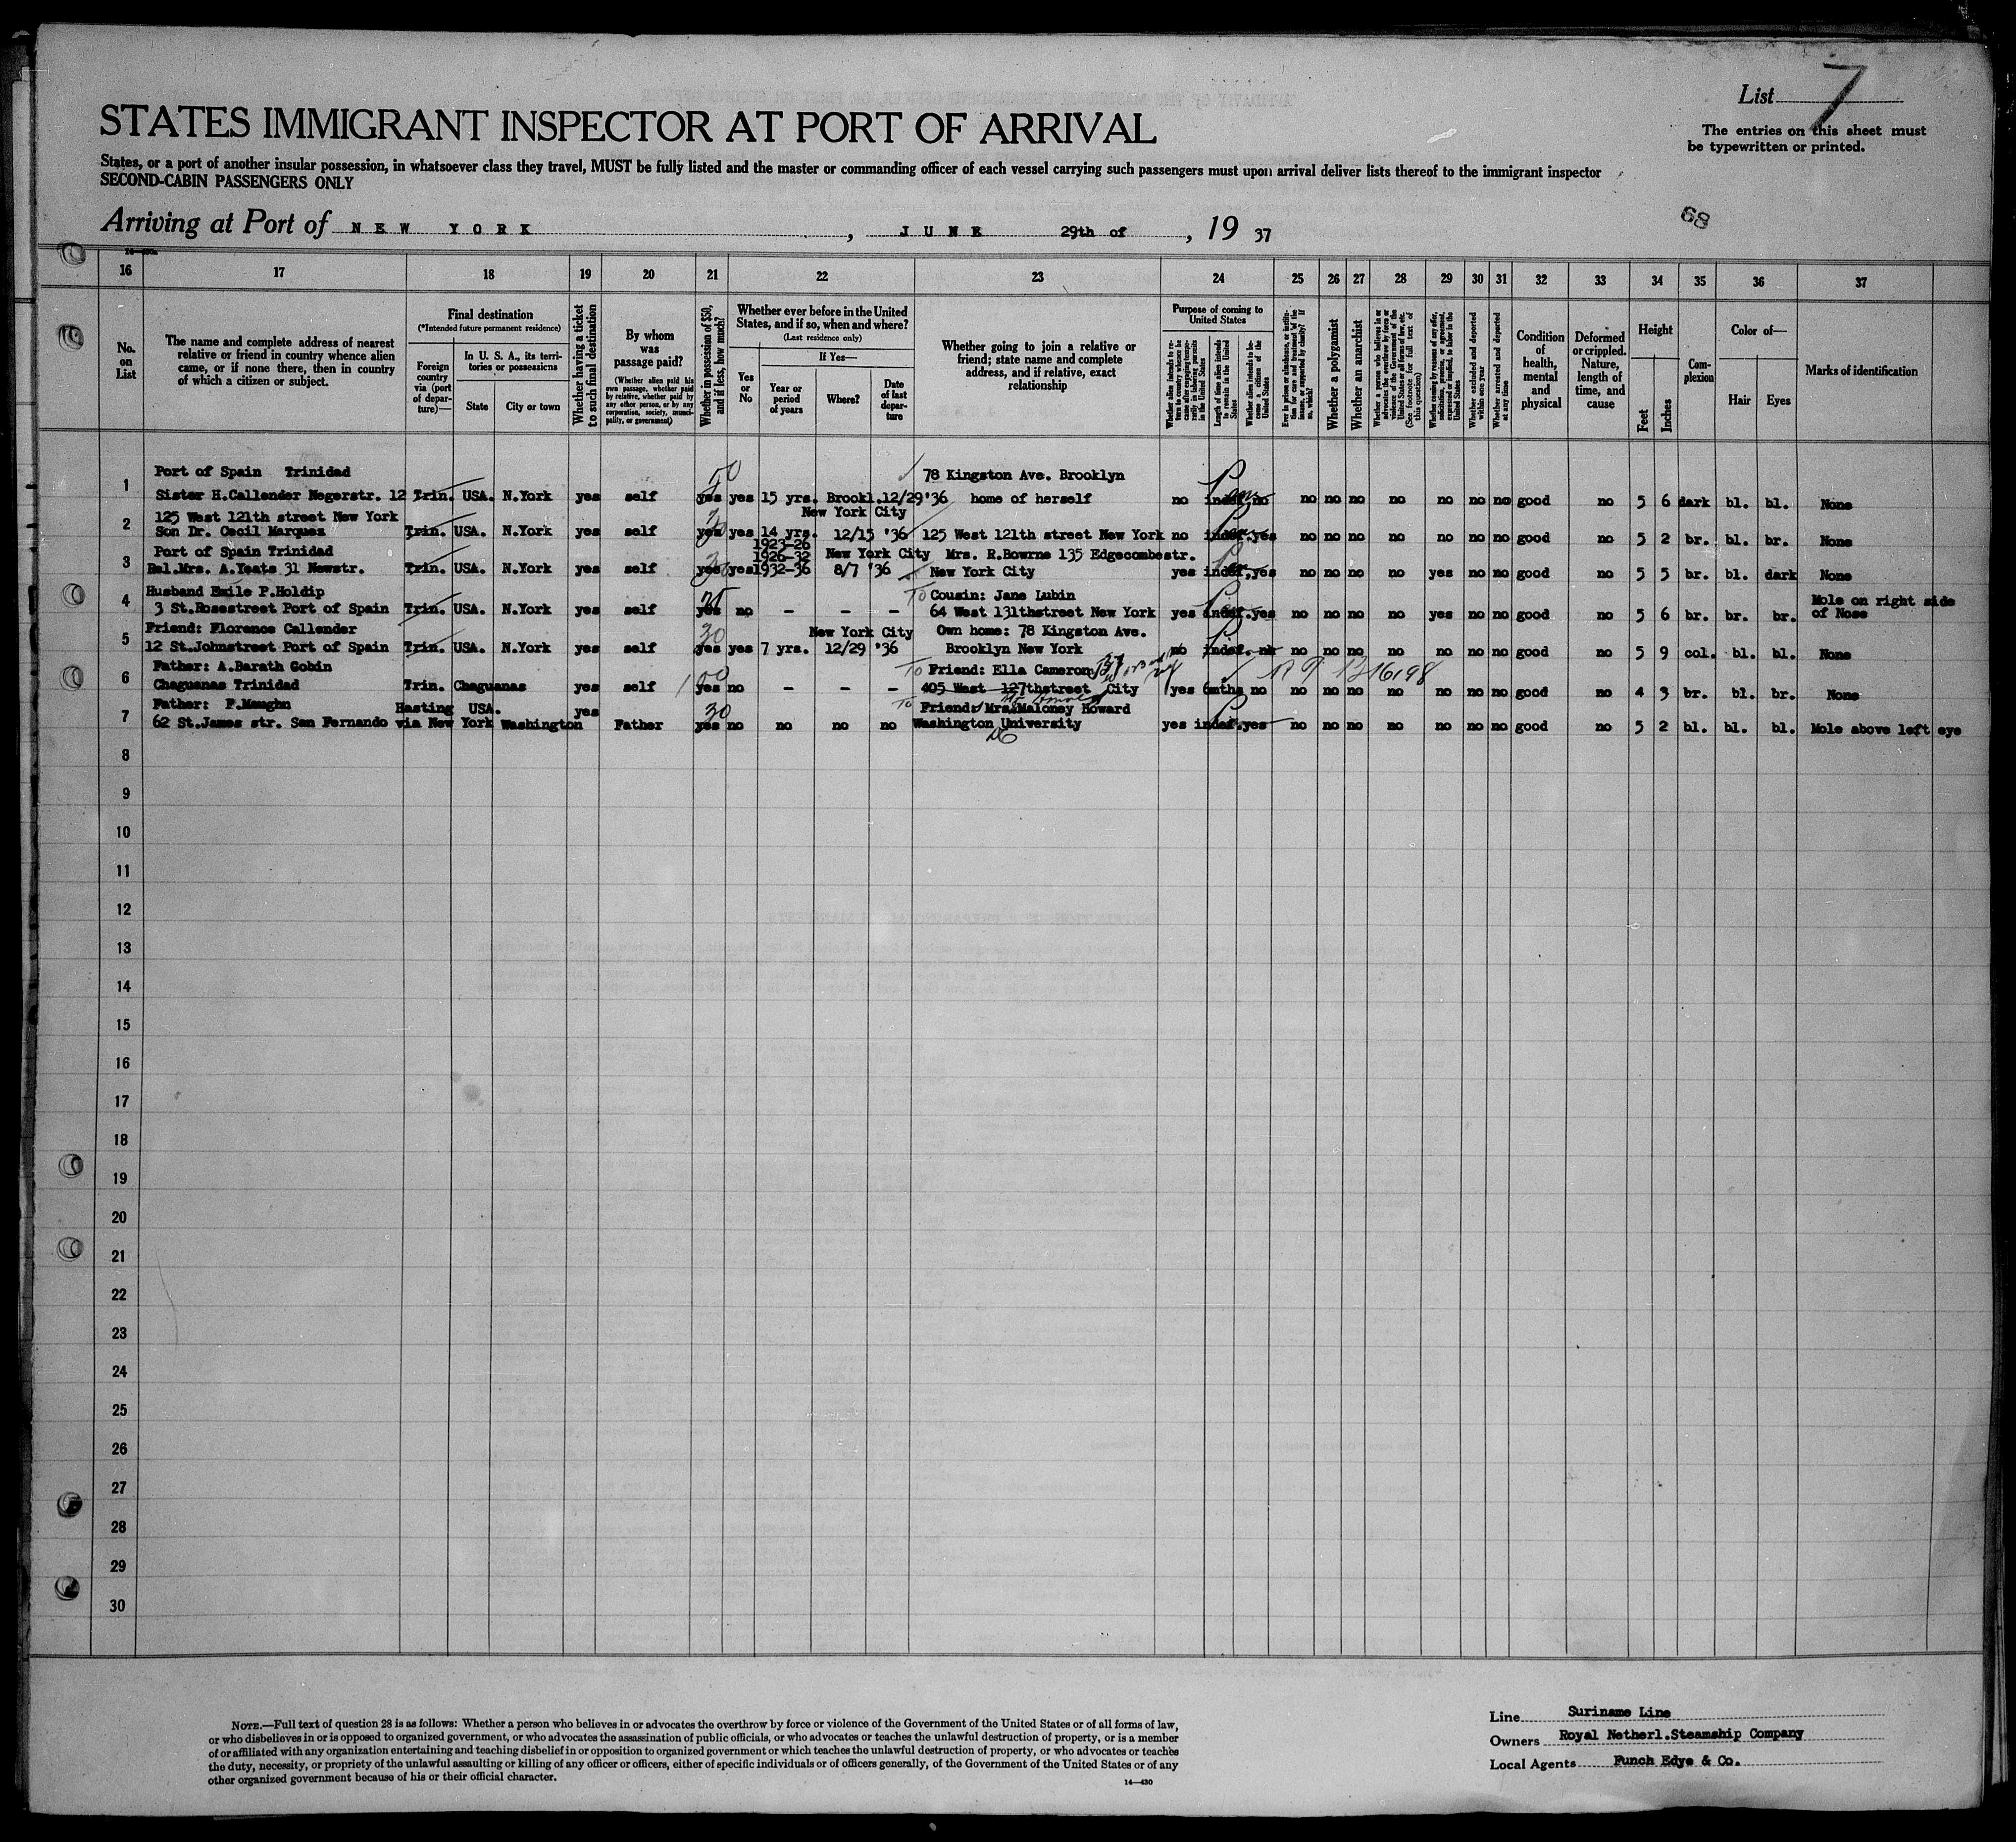 List 7
The entries on this sheet must
be typewritten or printed.
STATES IMMIGRANT INSPECTOR AT PORT OF ARRIVAL
States, or a port of another insular possession, in whatsoever class they travel, MUST be fully listed and the master or commanding officer of each vessel carrying such passengers must upon arrival deliver lists thereof to the immigrant inspector
SECOND-CABIN PASSENGERS ONLY
68
Arriving at Port of NEW YORK, JUNE 29th of, 19 37
16 17 18 19 20 21 22 23 24 25 26 27 28 29 30 31 32 33 34 35 36 37
No. on List
The name and complete address of nearest relative or friend in country whence alien came, or if none there, then in country of which a citizen or subject.
Final destination
(*Intended future permanent residence)
Foreign country via (port of departure)—
In U. S. A., its territories or possessions
State
City or town
Whether having a ticket to such final destination
By whom was passage paid?
(Whether alien paid his own passage, whether paid by relative, whether paid by any other person, or by any corporation, society, municipality, or government)
Whether in possession of $50, and if less, how much?
Whether ever before in the United States, and if so, when and where?
(Last residence only)
Yes or No
If Yes—
Year or period of years
Where?
Date of last departure
Whether going to join a relative or friend; state name and complete address, and if relative, exact relationship
Purpose of coming to United States
Length of time alien intends to remain in the United States
Whether alien intends to become a citizen of the United States
Whether a polygamist
Whether an anarchist
(See footnote for full text of this question)
Whether excluded and deported within one year
Whether arrested and deported at any time
Condition of health, mental and physical
Deformed or crippled. Nature, length of time, and cause
Height
Feet
Inches
Complexion
Color of—
Hair
Eyes
Marks of identification
Port of Spain Trinidad 50 78 Kingston Ave. Brooklyn
1 Sister H.Callender Negerstr. 12 Trin. USA. N.York yes self yes yes 15 yrs. Brookl.12/29'36 home of herself no indef. no no no no no no no no good no 5 6 dark bl. bl. None
125 West 121th street New York New York City
2 Son Dr. Cecil Marques Trin. USA. N.York yes self yes yes 14 yrs. 12/15 '36 125 West 121th street New York no indef. yes no no no no no no no good no 5 2 br. bl. br. None
Port of Spain Trinidad 1923-26 1926-32 New York City Mrs. R.Bowrne 135 Edgecombestr.
3 Rel.Mrs. A.Yeats 31 Newstr. Trin. USA. N.York yes self yes yes 1932-36 8/7 '36 New York City yes indef. yes no no no no yes no no good no 5 5 br. bl. dark None
Husband Emile P.Holdip To Cousin: Jane Lubin Mole on right side
4 3 St.Rosestreet Port of Spain Trin. USA. N.York yes self yes no - - - 64 West 131thstreet New York yes indef. yes no no no no yes no no good no 5 6 br. br. br. of Nose
Friend: Florence Callender 30 New York City Own home: 78 Kingston Ave.
5 12 St.Johnstreet Port of Spain Trin. USA. N.York yes self yes yes 7 yrs. 12/29 '36 Brooklyn New York no indef. no no no no no no no good no 5 9 col. bl. bl. None
Father: A.Barath Gobin 100 To Friend: Ella Cameron
6 Chaguanas Trinidad Trin. Chaguanas yes self yes no - - - 405 West 127thstreet City yes 6mths no no no no no no no no good no 4 3 br. bl. br. None
Father: F.Maughn Hasting USA. yes 30 To Friend: Mrs.Maloney Howard
7 62 St.James str. San Fernando via New York Washington Father yes no no no no Washington University DC yes indef. yes no no no no no no no good no 5 2 bl. bl. bl. Mole above left eye
8
9
10
11
12
13
14
15
16
17
18
19
20
21
22
23
24
25
26
27
28
29
30
NOTE.—Full text of question 28 is as follows: Whether a person who believes in or advocates the overthrow by force or violence of the Government of the United States or of all forms of law,
or who disbelieves in or is opposed to organized government, or who advocates the assassination of public officials, or who advocates or teaches the unlawful destruction of property, or is a member
of or affiliated with any organization entertaining and teaching disbelief in or opposition to organized government or which teaches the unlawful destruction of property, or who advocates or teaches
the duty, necessity, or propriety of the unlawful assaulting or killing of any officer or officers, either of specific individuals or of officers generally, of the Government of the United States or of any
other organized government because of his or their official character.
14—430
Line Suriname Line
Owners Royal Netherl.Steamship Company
Local Agents Funch Edye & Co.